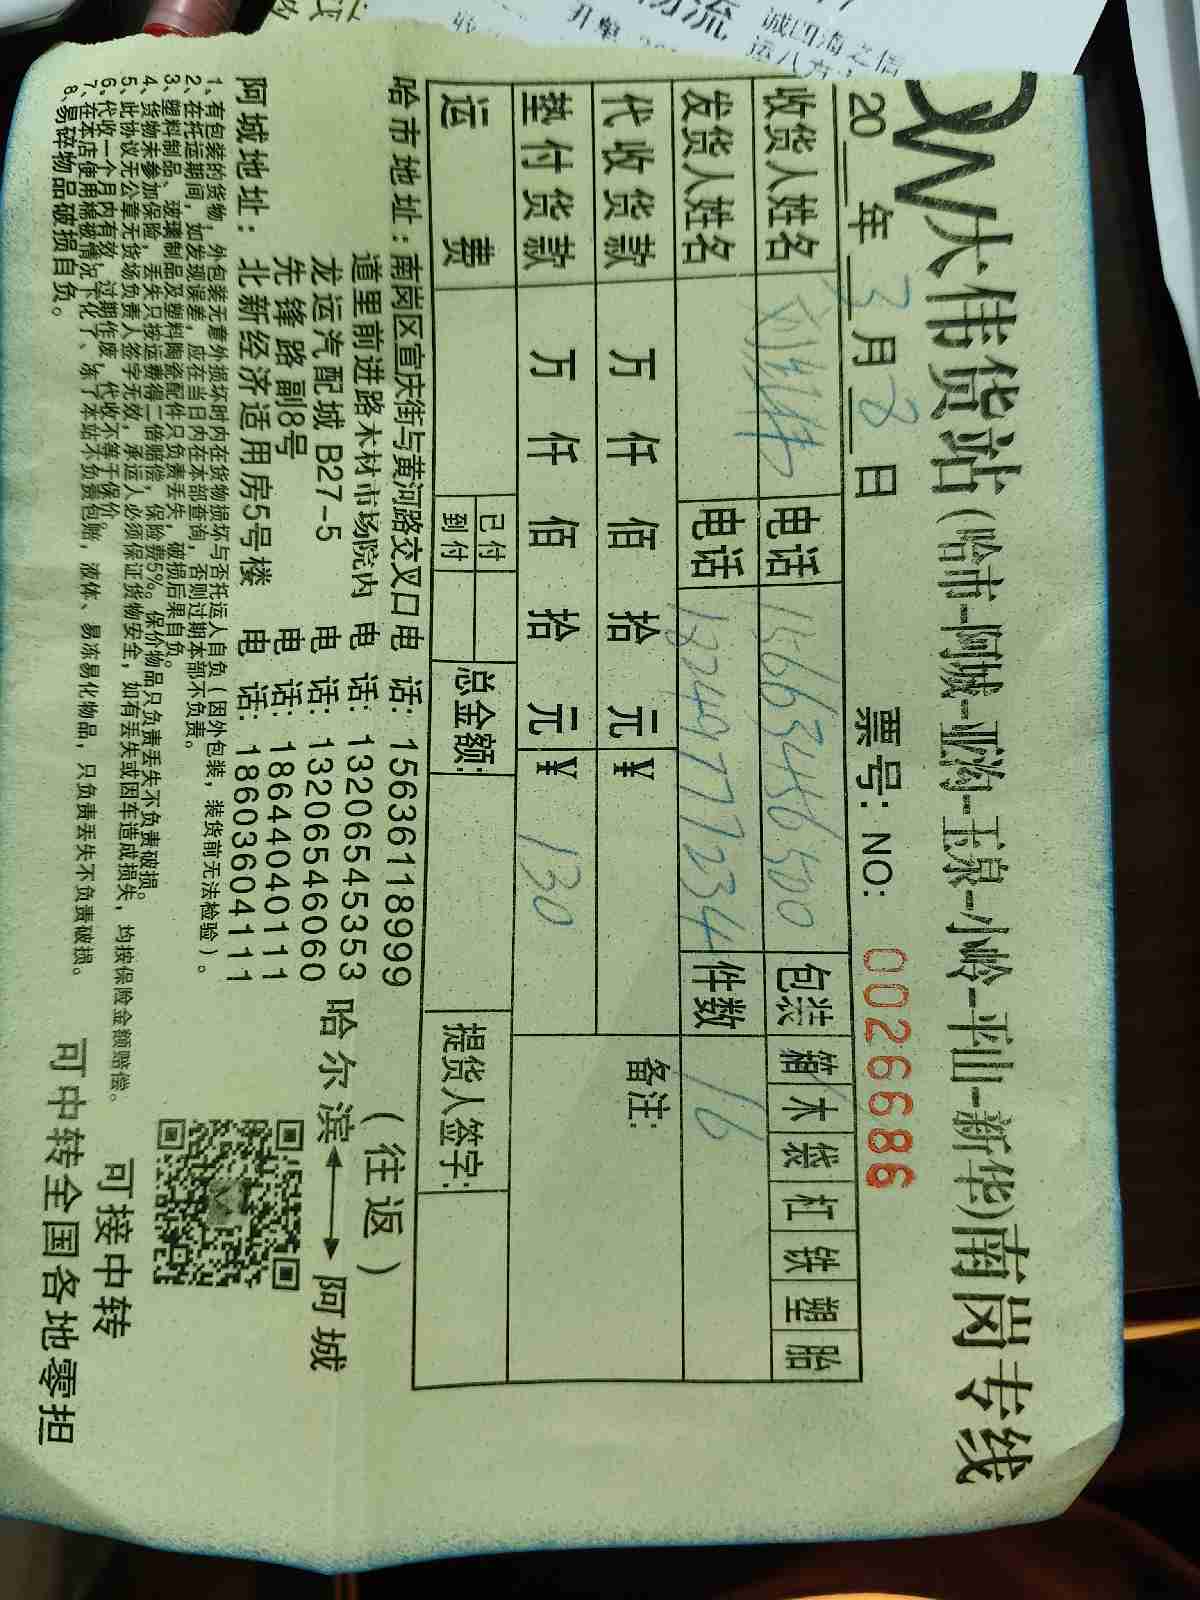 大伟货站(哈市-阿城-亚沟-玉泉-小岭-平山-新华)南岗专线
20 年 3 月 8 日 票号: NO: 0026686
收货人姓名 电话 15663486500 包装 箱 木 袋 杠 铁 塑 胎
发货人姓名 电话 18249777234 件数 16
代收货款 万 仟 佰 拾 元 ¥ 备注:
垫付货款 万 仟 佰 拾 元 ¥ 130
运费 已付 到付 总金额: 提货人签字:
哈市地址: 南岗区宣庆街与黄河路交叉口 电 话: 15636118999
道里前进路木材市场院内 电 话: 13206545353
龙运汽配城 B27-5 电 话: 13206546060
先锋路副8号 电 话: 18644040111
阿城地址: 北新经济适用房5号楼 电 话: 18603604111
(往返)
哈尔滨 ↔ 阿城
1、有包装的货物,外包装无意外损坏时内在货物损坏与否托运人自负(因外包装,装货前无法检验)。
2、在托运期间,如发现误差,应在当日内在本部查询,否则过期本部不负责。
3、塑料制品、玻璃制品及塑料陶瓷配件只负责丢失,破损后果自负。
4、货物未参加保险,丢失只按运费得二倍赔偿,保险费5%。保价物品只负责丢失不负责破损。
5、此协议无公章无货场负责人签字无效,承运人必须保证货物安全,如有丢失或因车造成损失,均按保险金额赔偿。
6、代收一个月内有效,过期作废,代收不等于保价。
7、在本店使用棉被情况下化了、冻了本站不负责包赔,液体、易冻易化物品,只负责丢失不负责破损。
8、易碎物品破损自负。
可接中转
可中转全国各地零担